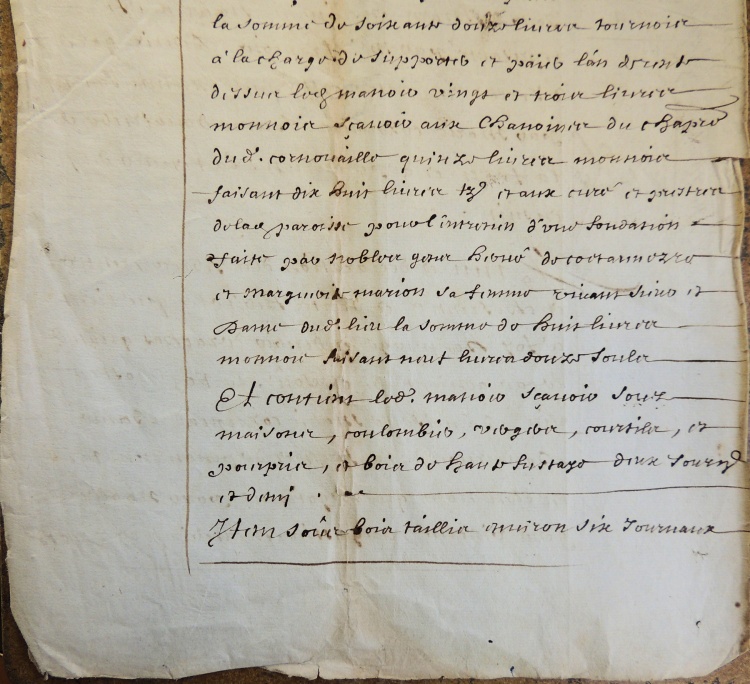 la somme de soixante douze livres tournois
à la charge de supporter et païer l'an de rente
dessus led manoir vingt et trois livres
monnois sçavoir aux Chanoines du chapre
dud. cornouaille quinze livres monnois
faisant dix huit livres tz et aux curé et prestres
de lad paroisse pour l'întretien d'une fondation
faite par nobles gens hervé de coetanezre
et Margueritte marion sa femme vivant sieur et
Dame dud. lieu la somme de huit livres
monnoie faisant neuf livres douze souls
Et contient led. manoir sçavoir souz
maisons, coulombier, verger, courtils, et
pourpris, et bois de haute fustaye deux Journ
et demi.
Item soûs bois taillis environ six Journaux